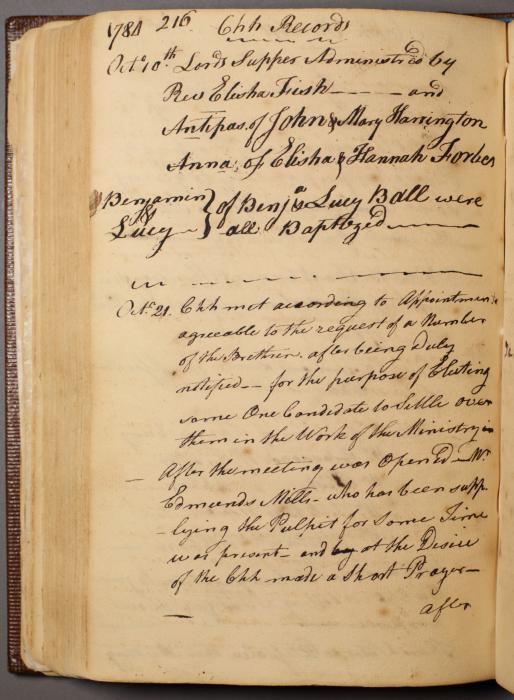 1784 216. Chh Records
Octr 10th. Lords Supper Administred by
Rev Elisha Fish and
Antipas. of John & Mary Harrington
Anna, of Elisha & Hannah Forbes
Benjamin
& } of Benja & Lucy Ball were
Lucy all Baptized
Octr 21. Chh met according to Appointment
agreeable to the request of a Number
of the Brethren. after being duly
notified — for the purpose of Electing
some One Candidate to Settle over
them in the Work of the Ministry
— After the meeting was Opened — Mr
Edmunds Mills — who has been supp-
-lying the Pulpit for Some Time
was present — and by at the Desire
of the Chh made a Short Prayer —
— after